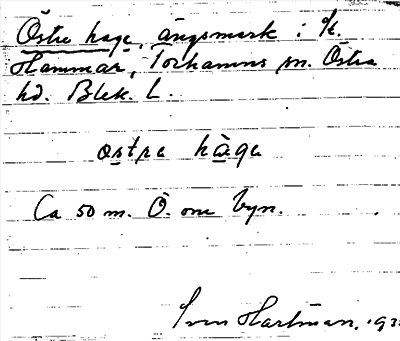 Östre hage, ängsmark i St.
Hammar, Torhamns sn. Östra
hd. Blek. L.
ostrə hàgə
Ca 50 m. Ö. om byn.
Sven Hartman, 193